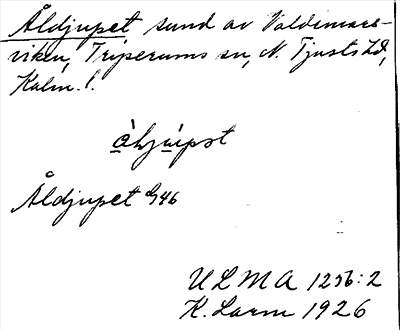 Åldjupet sund av Valdemars-
viken, Tryserums sn, N. Tjusts hd,
Kalm. l.
Åldjupet G46
ULMA 1256:2
K. Larm 1926